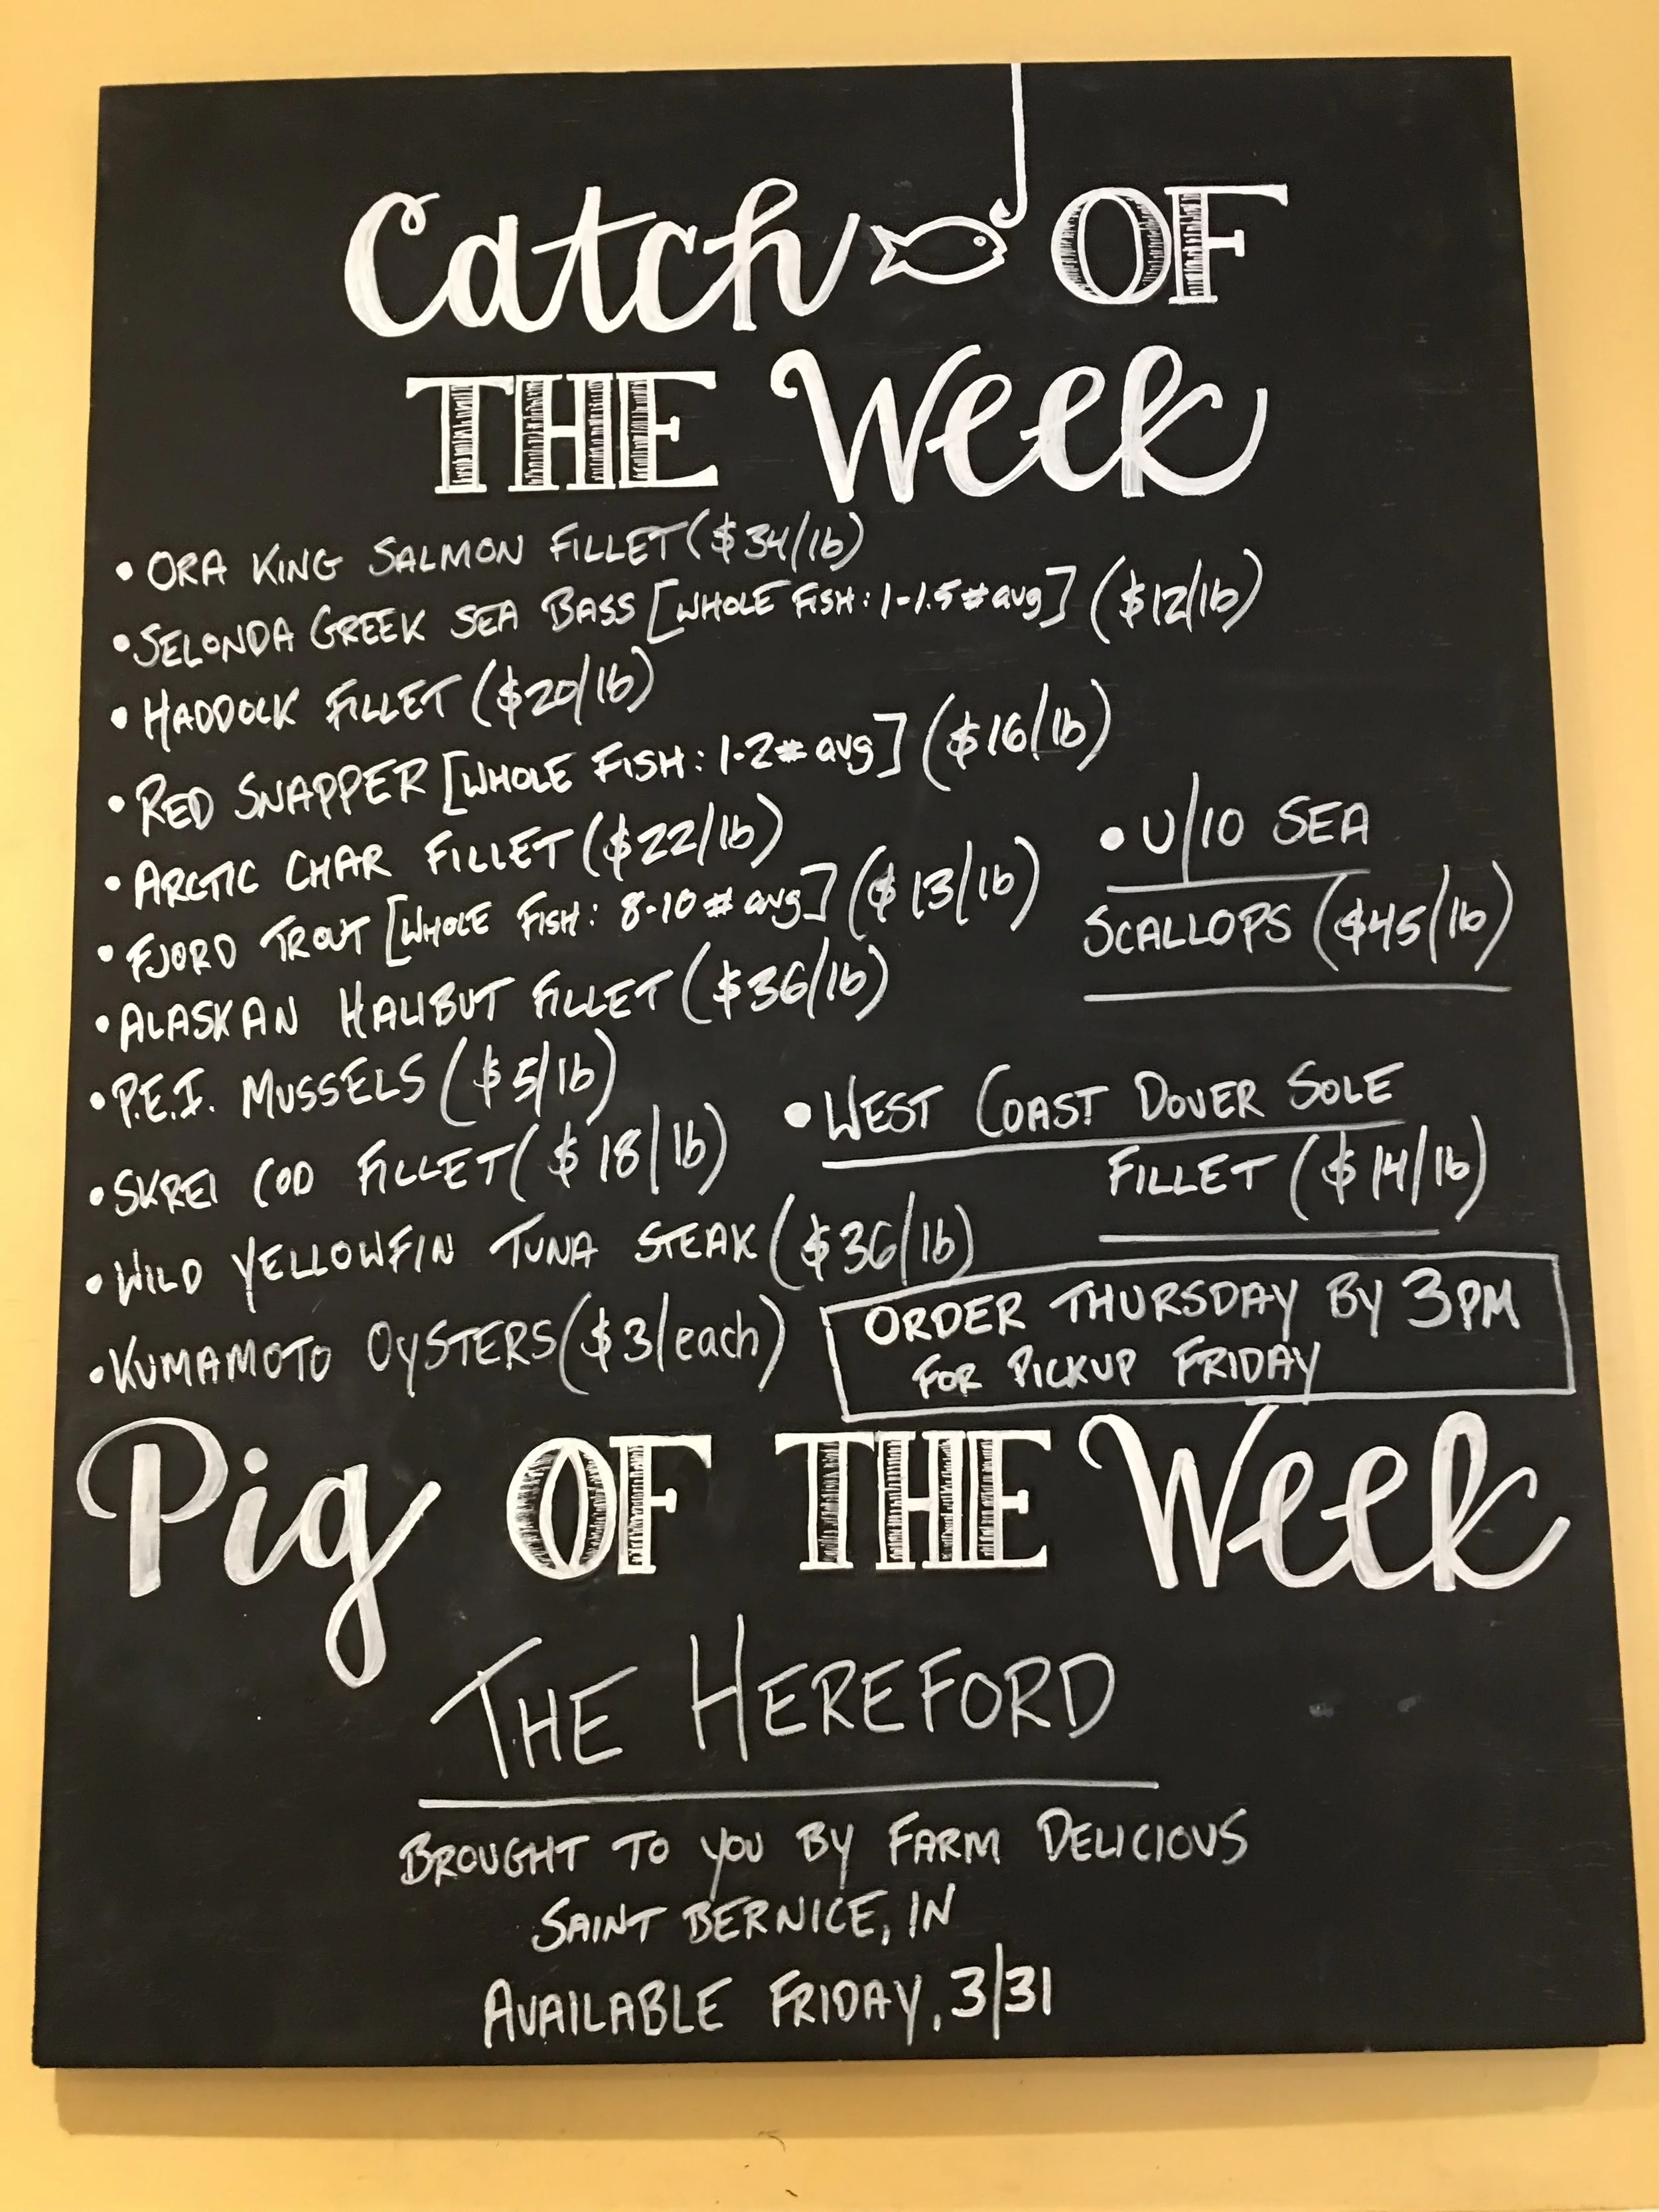 Catch OF
THE Week
• ORA KING SALMON FILLET ($34/lb)
• SELONDA GREEK SEA BASS [WHOLE FISH: 1-1.5# avg] ($12/lb)
• HADDOCK FILLET ($20/lb)
• RED SNAPPER [WHOLE FISH: 1-2# avg] ($16/lb)
• ARCTIC CHAR FILLET ($22/lb)
• FJORD TROUT [WHOLE FISH: 8-10# avg] ($13/lb)
• ALASKAN HALIBUT FILLET ($36/lb)
• P.E.I. MUSSELS ($5/lb)
• SKREI COD FILLET ($18/lb)
• WILD YELLOWFIN TUNA STEAK ($36/lb)
• KUMAMOTO OYSTERS ($3/each)
• U/10 SEA
SCALLOPS ($45/lb)
• WEST COAST DOVER SOLE
FILLET ($14/lb)
ORDER THURSDAY BY 3PM
FOR PICKUP FRIDAY
Pig OF THE Week
THE HEREFORD
BROUGHT TO YOU BY FARM DELICIOUS
SAINT BERNICE, IN
AVAILABLE FRIDAY, 3/31